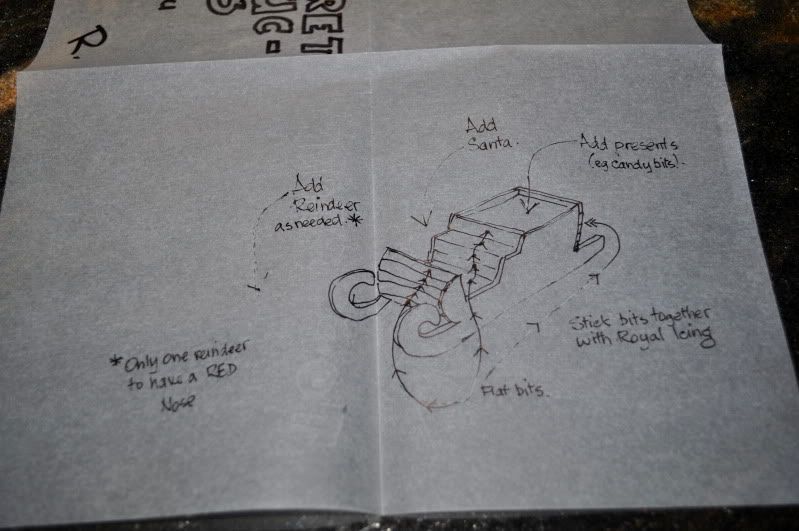 RET
UG-
R.
Add
Santa.
Add presents
(eg candy bits).
Add
Reindeer
as needed. *
Stick bits together
with Royal Icing
* Only one reindeer
to have a RED
Nose
Flat bits.